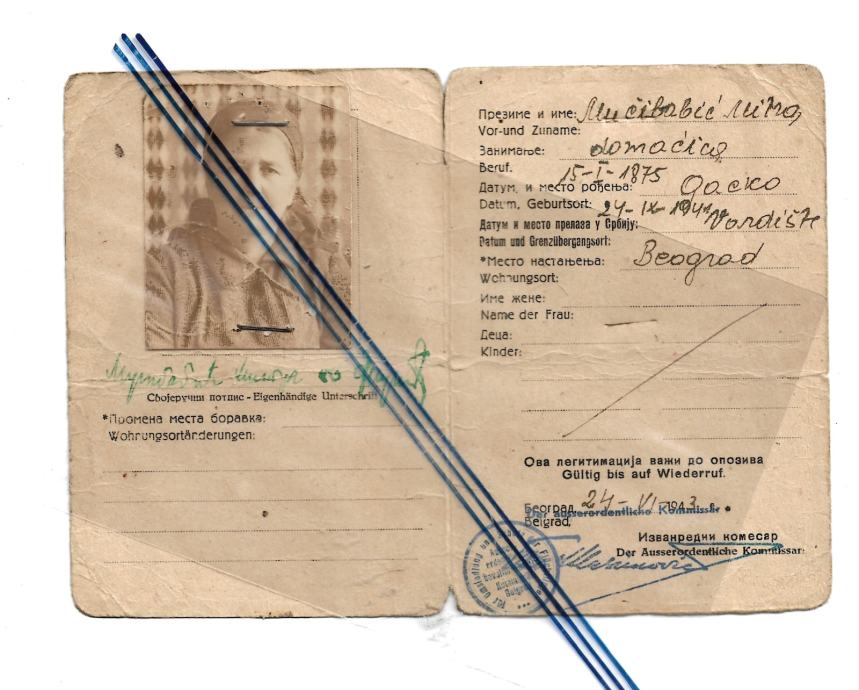 Својеручни потпис - Eigenhändige Unterschrift
*Промена места боравка:
Wohnungsortänderungen:
Презиме и име: Mučibabić
Vor-und Zuname:
Занимање: domaćica
Beruf.
15-I-1875
Датум, и место рођења: Gacko
Datum, Geburtsort:
24-IX-1941 Vardište
Датум и место прелаза у Србију:
Datum und Grenzübergangsort:
*Место настањења: Beograd
Wohnungsort:
Име жене:
Name der Frau:
Деца:
Kinder:
Ова легитимација важи до опозива
Gültig bis auf Wiederruf.
Београд, 24-VI-1943 г.
Der ausserordentliche Kommissar
Belgrad,
Изванредни комесар
Der Ausserordentliche Kommissar: